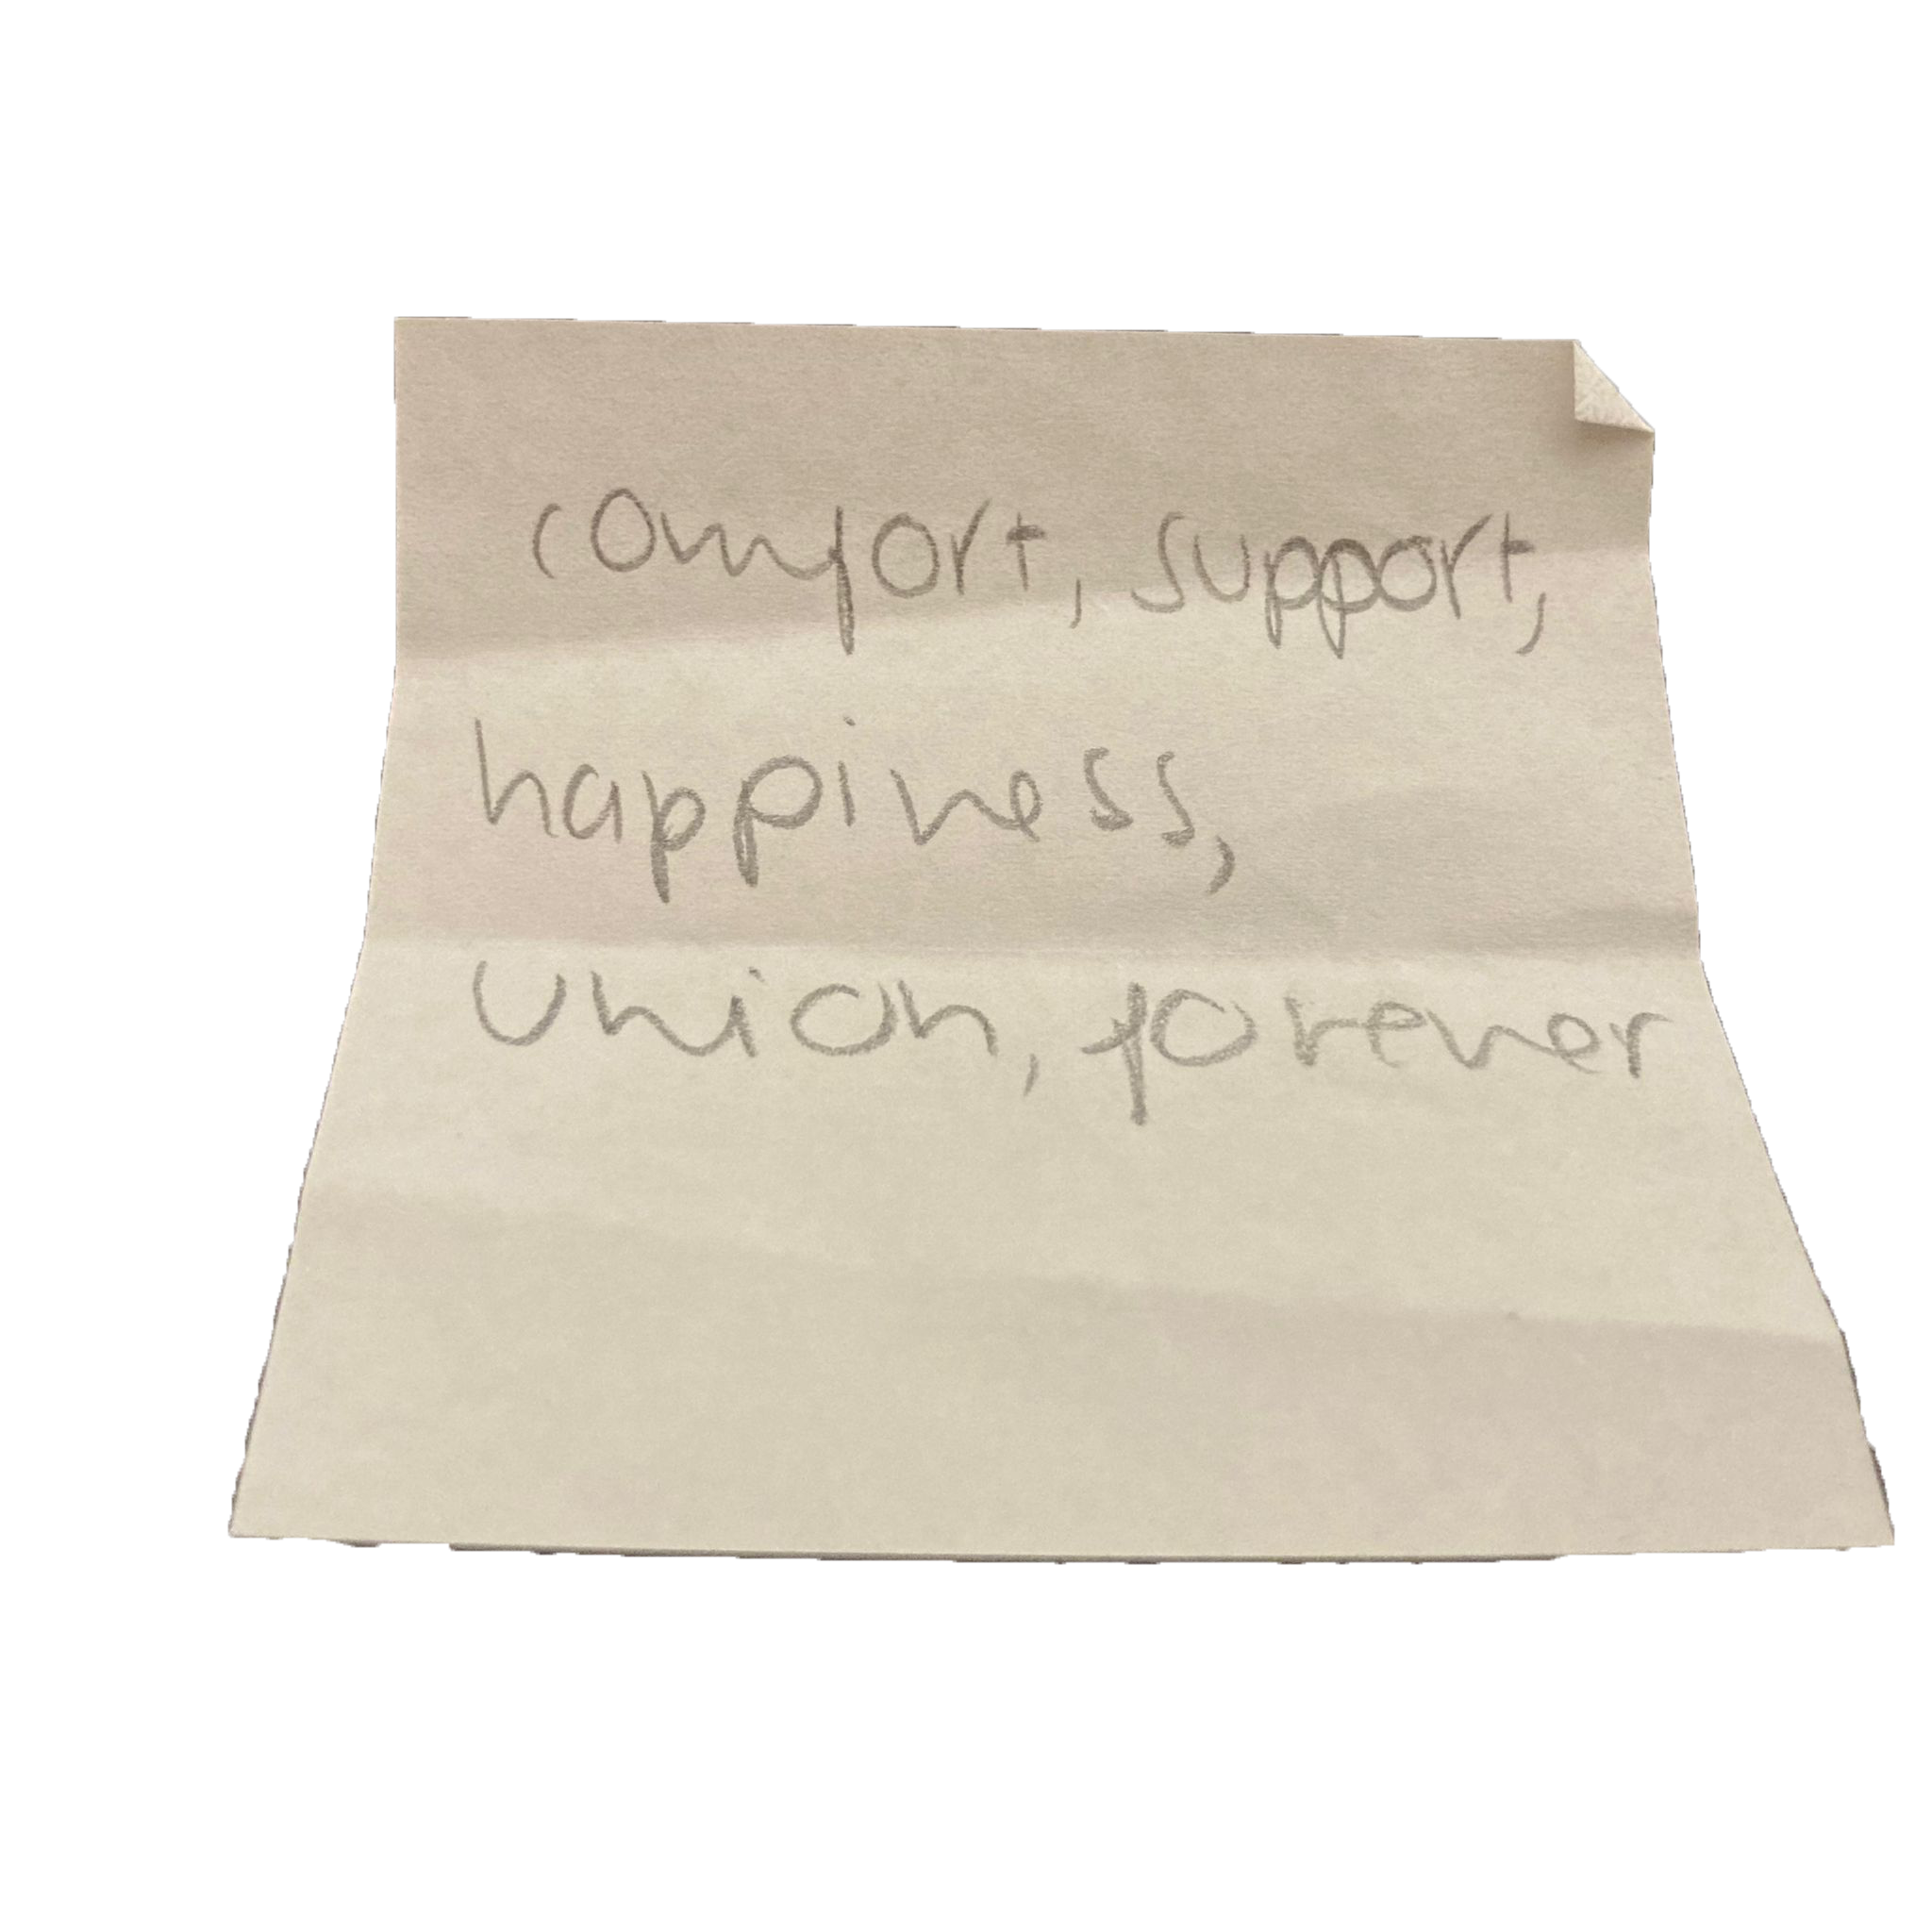 comfort, support,
happiness,
union, forever